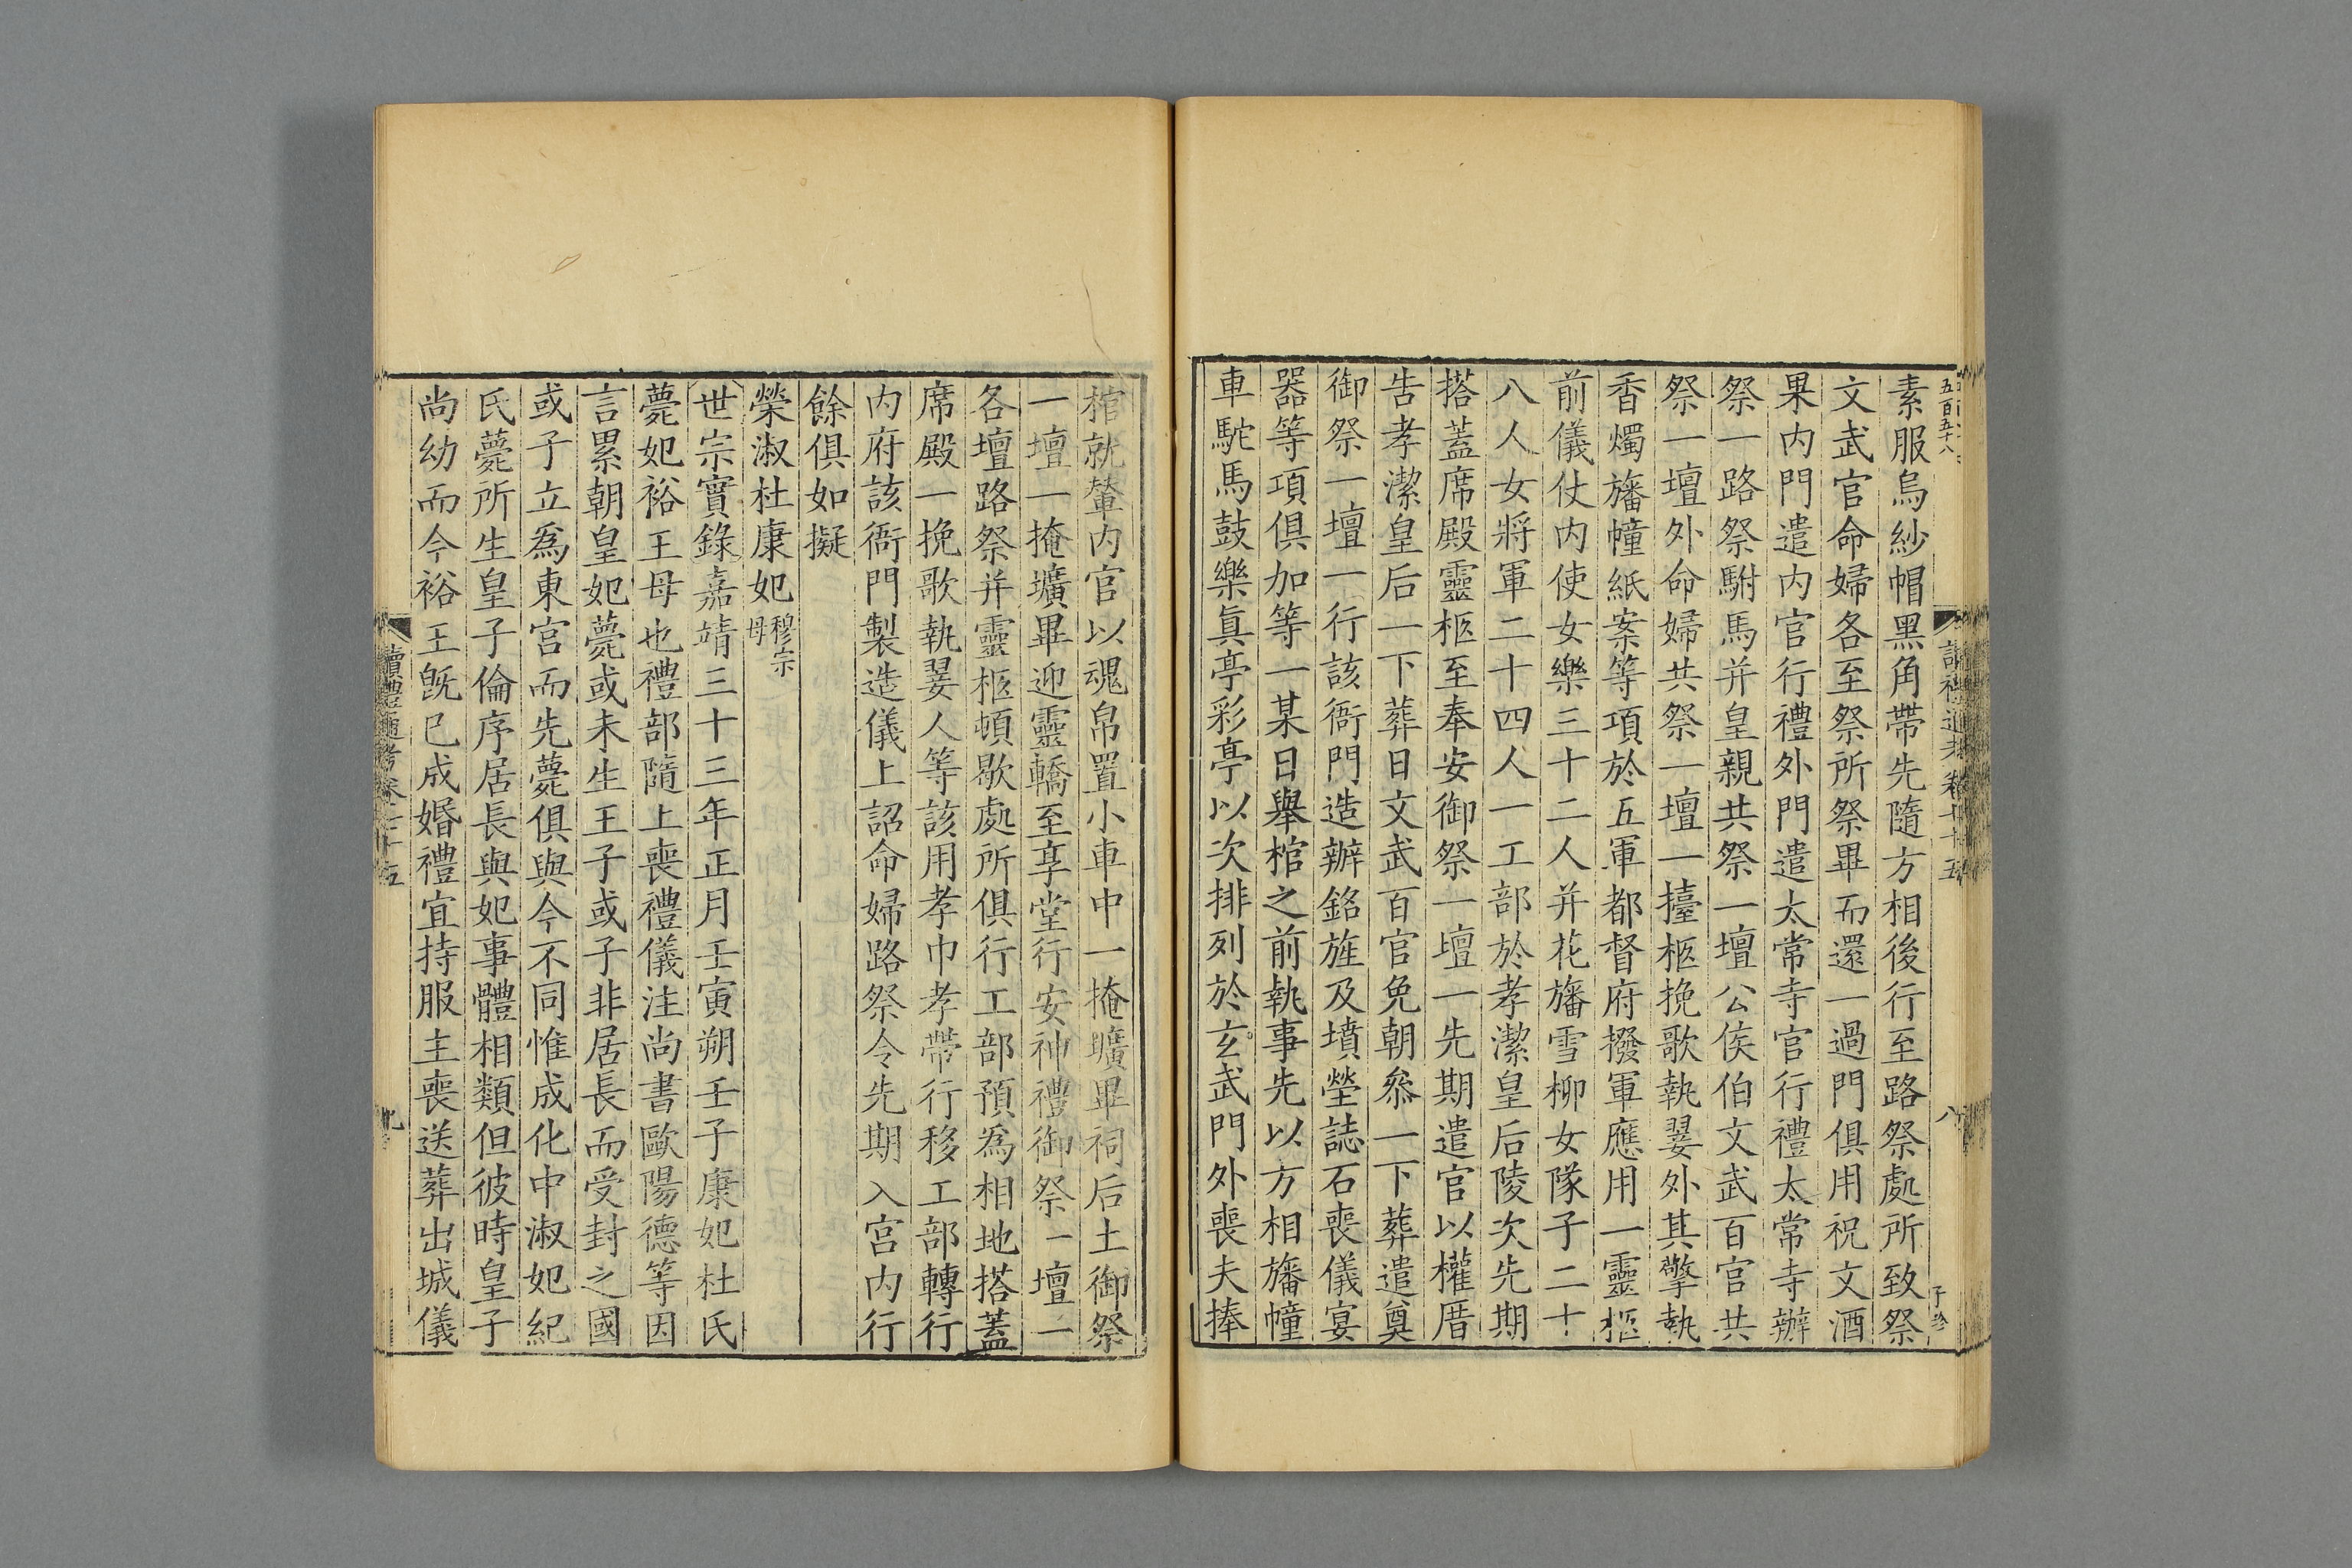 五百五十八
素服烏紗帽黑角帶先隨方相後行至路祭處所致祭
文武官命婦各至祭所祭畢而還一過門俱用祝文酒
果内門遣内官行禮外門遣太常寺官行禮太常寺辦
祭一路祭駙馬并皇親共祭一壇公侯伯文武百官共
祭一壇外命婦共祭一壇一擡柩挽歌執翣外其擎執
香燭旛幢紙案等項於五軍都督府撥軍應用一靈柩
前儀仗内使女樂三十二人并花旛雪柳女隊子二十
八人女將軍二十四人一工部於孝潔皇后陵次先期
搭蓋席殿靈柩至奉安御祭一壇一先期遣官以權厝
告孝潔皇后一下葬日文武百官免朝叅一下葬遣奠
御祭一壇一行該衙門造辦銘旌及墳塋誌石喪儀宴
器等項俱加等一某日舉棺之前執事先以方相旛幢
車駝馬鼓樂眞亭彩亭以次排列於玄武門外喪夫捧
棺就輦内官以魂帛置小車中一掩壙畢祠后土御祭
一壇一掩壙畢迎靈轎至享堂行安神禮御祭一壇一
各壇路祭并靈柩頓歇處所俱行工部預爲相地搭蓋
席殿一挽歌執翣人等該用孝巾孝帶行移工部轉行
内府該衙門製造儀上詔命婦路祭令先期入宫内行
餘俱如擬
榮淑杜康妃穆宗母
世宗實錄嘉靖三十三年正月壬寅朔壬子康妃杜氏
薨妃裕王母也禮部隨上喪禮儀注尚書歐陽德等因
言累朝皇妃薨或未生王子或子非居長而受封之國
或子立爲東宫而先薨俱與今不同惟成化中淑妃紀
氏薨所生皇子倫序居長與妃事體相類但彼時皇子
尚幼而今裕王旣已成婚禮宜持服主喪送葬出城儀
讀禮通考卷七十五
九